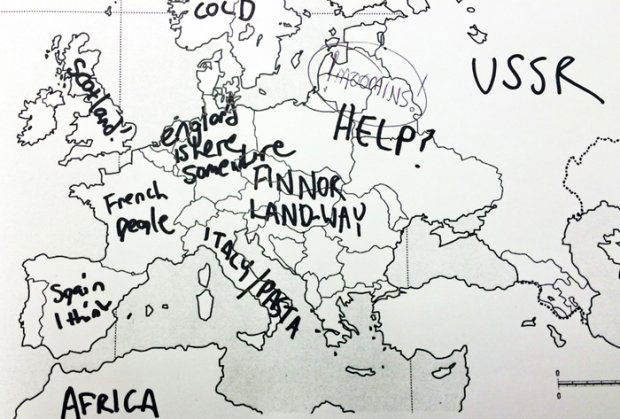 COLD
Scotland?
USSR
HELP?
england
is here
somewhere
FINNOR
LAND-WAY
French
people
ITALY/PASTA
Spain
I think
AFRICA
0